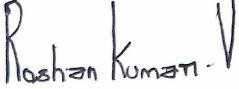 Roshan Kumar. V